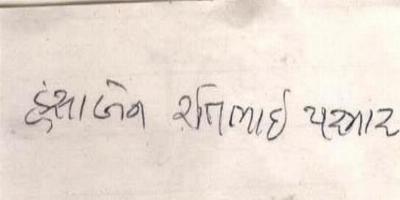 હંસાબેન રતિલાઈ પરમાર